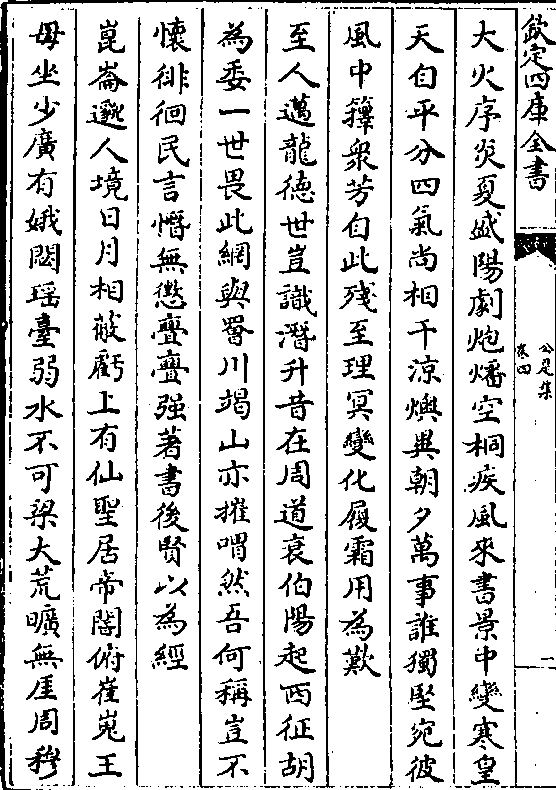 欽定四庫全書
公是集
卷四
一
大火序炎夏盛陽劇炮燔空桐疾風來書景中變寒皇
天自平分四氣尚相干涼燠異朝夕萬事誰獨堅宛彼
風中籜衆芳自此殘至理冥變化履霜用為歎
至人邁龍德世豈識潛升昔在周道衰伯陽起西征胡
為委一世畏此網與罾川竭山亦摧喟然吾何稱豈不
懷徘徊民言憯無懲亹亹强著書後賢以為經
崑崙邈人境日月相蔽虧上有仙聖居帝閽俯崔嵬王
母坐少廣有娥閟瑶臺弱水不可梁大荒曠無厓周穆